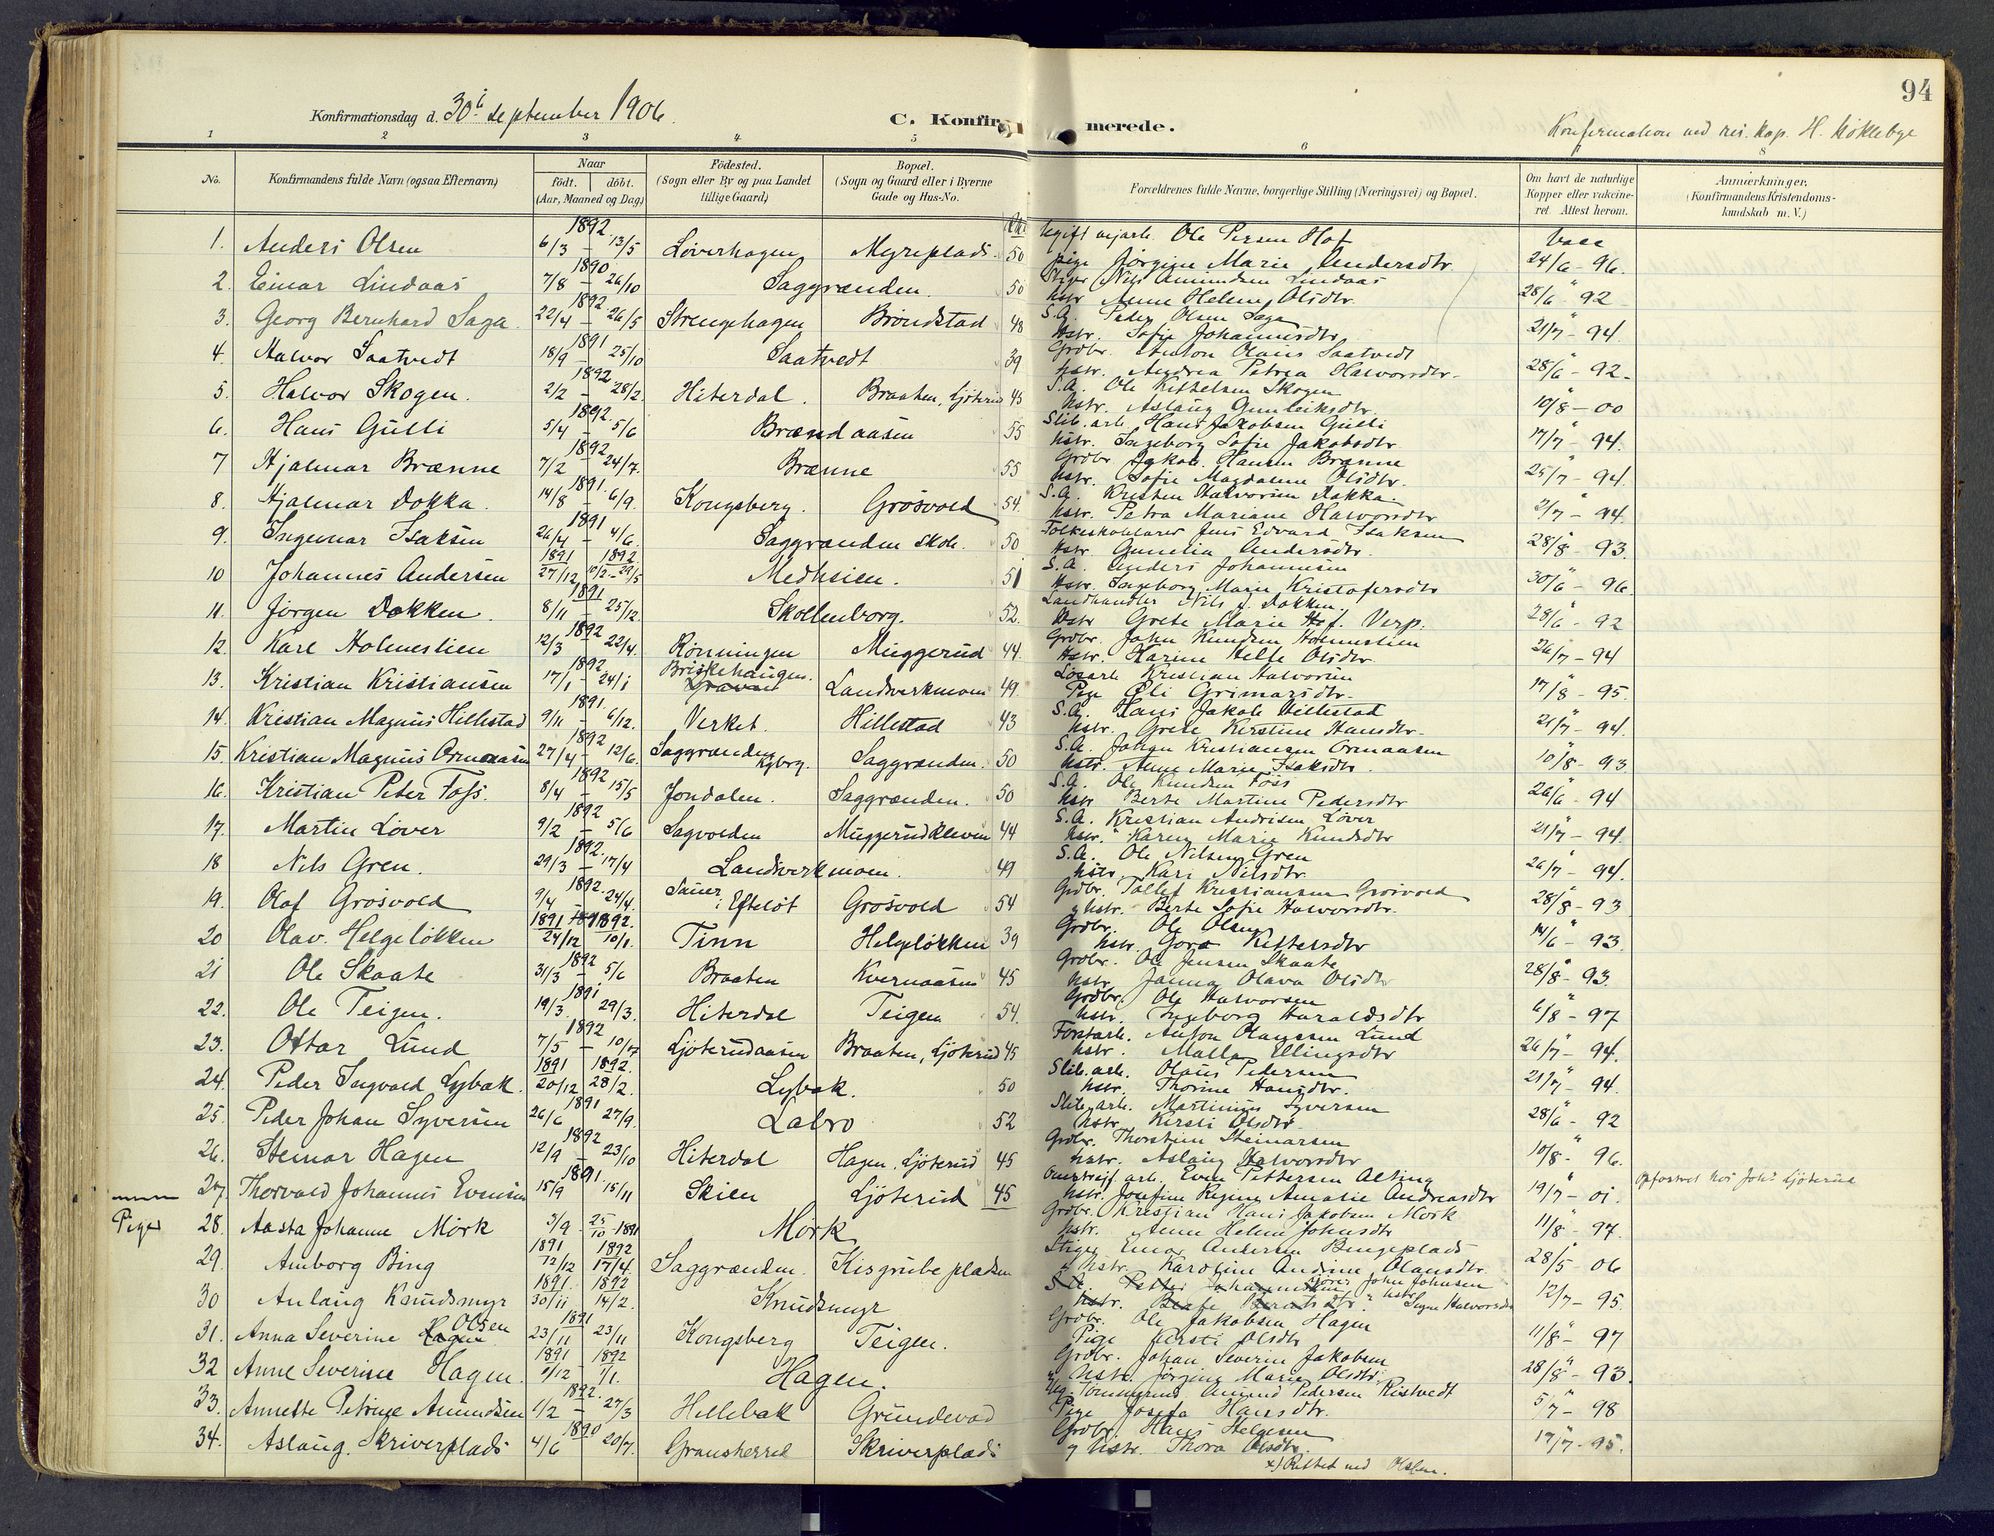 94
Konfirmationsdag d. 30i september 1906.
C. Konfirmerede.
Konfirmation ved res. kap. H. Koklebye
1 2 3 4 5 6 8
No.
Konfirmandens fulde Navn (ogsaa Efternavn)
Naar
födt. döbt.
(Aar, Maaned og Dag)
Födested.
(Sogn eller By og paa Landet
tillige Gaard)
Bopæl.
(Sogn og Gaard eller i Byerne
Gade og Hus-No.
Forældrenes fulde Navne, borgerlige Stilling (Næringsvei) og Bopæl.
Om havt de naturlige
Kopper eller vakcine-
ret. Attest herom.
Anmærkninger.
(Konfirmandens Kristendoms-
kundskab m. V.)
1. Anders Olsen 1892 6/3 – 13/5 Løverhagen Myreplads 50 Ugift Ole Persen Hof
pige Jørgine Marie Andersdtr. Vacc 24/6 – 96.
2. Einar Lindaas 1890 7/8 – 26/10 Saggrænden. 50 Stiger Nils Amundsen Lindaas
hstr Anne Helene Olsdtr. 28/6 – 92
3. Georg Bernhard Saga 1892 22/4 – 26/5 Strengehagen Brøndstad 48 S.A. Peder Olsen Saga
Hstr. Sofie Johannesdtr. 21/7 – 94.
4. Halvor Saatvedt 1891 18/9 – 25/10 Saatvedt 39 Grdbr. Anton Olaus Saatvedt
hstr. Andrea Petrea Halvorsdtr. 28/6 – 92.
5. Halvor Skogen. 1892 2/2 – 28/2 Hiterdal. Braaten, Ljøterud 45 S.A. Ole Kittelsen Skogen
hstr. Aslaug Gunleiksdtr. 10/8 – 00
6. Hans Gulli 1892 5/4 – 5/6 Brændaasen 55 Slib. arb. Hans Jakobsen Gulli
hstr. Ingeborg Sofie Jakobsdtr. 17/7 – 94.
7 Hjalmar Brænne 1892 7/2 – 24/7. Brænne 55 Grdbr Jakob Hansen Brænne
hstr. Sofie Magdalene Olsdtr. 25/7 – 94.
8. Hjalmar Dokka. 1891. 14/8 – 6/9. Kongsberg. Grosvold 54 S.A. Kristen Halvorsen Dokka.
hstr. Petra Mariane Halvorsdtr 2/7 – 94.
9. Ingemar Isaksen 1891 26/4 – 4/6. Saggrænden skole. 50 Folkeskolelærer Jens Edvard Isaksen
Hstr. Gunelia Andersdtr. 28/8 – 93.
10 Johannes Andersen 1891 27/12 1892 10/2 – 29/5 Medhsien. 51 S.A. Anders Johannesen
Hstr. Ingeborg Marie Kristofersdtr 30/6 – 96
11. Jørgen Dokken. 1891 8/11 – 25/12. Skollenborg. 52. Landhandler Nils J. Dokken.
Hstr Grete Marie Hof. Verp. 28/6 – 92
12. Karl Holmestien 1892 12/3 – 22/4. Rønningen Muggerud 44. Grdbr. John Knudsen Holmestien
Hstr. Karine Helle Olsdtr. 26/7 – 94
13. Kristian Kristiansen 1892. 17/1 – 24/1 Briskehaugen. Landverkmoen 49. Løsarb Kristian Halvorsen
Pige Oli Grimarsdtr. 17/8 – 95.
14. Kristian Magnus Hillestad 1891. 9/11 – 6/12. Verket. Hillestad 43 S.A. Hans Jakob Hillestad
hstr. Grete Kirstine Hansdtr. 21/7 – 94.
15. Kristian Magnus Ormaasen 1892 27/4 – 12/6. Saggrænden Kgbrg. Saggrænden. 50 S.A. Johan Kristiansen Ormaasen
hstr. Anne Marie Isaksdtr. 10/8 – 93.
16. Kristian Peter Foss. 1892 8/4 – 15/5 Jondalen. Saggrænden. 50 S.A. Ole Knudsen Foss
hstr Berte Martine Pedersdtr 26/6 – 94
17. Martin Løver 1892 9/2 – 5/6 Sagvolden Muggerudkleven 44 S.A. Kristian Andrisen Løver
hstr. Karen Marie Knudsdtr 21/7 – 94.
18 Nils Gren. 1892. 29/3 – 17/4 Landverkmoen. 49 S.A. Ole Nilsen Gren
hstr. Kari Nilsdtr. 26/7 – 94.
19. Olaf Grosvold 1892. 9/4 – 24/4. Sauer, i Efteløt Grosvold 54 Grdbr. Tollef Kristiansen Grosvold
y hstr. Berte Sofie Halvorsdtr. 28/8 – 93
20 Olav. Helgeløkken 1891 24/12 1892. 10/1. Tinn Helgeløkken 39 Grdbr. Ole Olsen
hstr. Gora Kittersdtr 14/6 – 93.
21 Ole Skaate 1892 31/3 – 5/6 Braaten Kvernaasen 45 Grdbr. Ole Jensen Skaate
hstr Janna Olava Olsdtr 28/8 – 93.
22. Ole Teigen. 1891 19/3 – 29/3. Hiterdal Teigen 54. Grdbr. Ole Halvorsen
hstr. Ingeborg Haraldsdtr 6/8 – 97
23. Ottar Lund 1892 7/5 – 10/7 Ljøterudaasen Braaten, Ljøterud 45 Forstarb. Anton Olaussen Lund
hstr. Malla Ellingsdtr 26/7 – 94.
24. Peder Ingvald Lybæk. 1891 20/12 1892. 28/2. Lybæk. 50 Slib. arb. Olaus Pedersen
hstr. Thorine Hansdtr. 21/7 – 94.
25. Peder Johan Syversen 1891 26/6 – 27/9. Labro 52 Slibe arb. Martinius Syversen
hstr. Kersti Olsdtr. 28/6 – 92
26. Steinar Hagen 1892 12/9 – 23/10 Hiterdal Hagen, Ljøterud 45 Grdbr. Thorstein Steinarsen
hstr. Aslaug Halvorsdtr 10/8 – 96.
27. Thorvald Johannes Evensen 1891 15/9 – 15/11 Skien Ljøterud 45 Omstreif. arb. Even Pettersen Alting
hstr. Josefine Regine Amalie Andreasdtr 19/7 – 01. Opfostret hos Johs Ljøterud
Piger 28. Aasta Johanne Mørk 3/9 – 25/10 1891 Mørk Grdbr. Kristian Hans Jakobsen Mørk
hstr. Anne Helene Johnsdtr 11/8 – 97.
29. Amborg Bing 1891 12/12 1892 17/4. Saggrænden. Kisgrube pladsen Stiger Einar Andersen Bingeplads
y Hstr. Karoline Andine Olausdtr 28/5 06
30 Anlaug Knudsmyr 1891. 30/11 1892 14/2. Knudsmyr S.A. Petter Johannesen John Johnsen
hstr. Beate Berntsdtr. hstr Signe Halvorsdtr 12/7 – 95.
31. Anna Severine Hagen Olsen 1891 23/11 23/11 Kongsberg Teigen. Grdbr. Ole Jakobsen Hagen
Pige Kersti Olsdtr 11/8 – 97
32 Anne Severine Hagen. 1891 9/12 1892 1/1. Hagen. Grdbr. Johan Severin Jakobsen
y Hstr. Jørgine Marie Olsdtr. 28/8 – 93.
33. Annette Petrine Amundsen 1892. 1/2 – 27/3 Hellebæk Grundevad Ug. Tømmermd. Amund Pedersen Ristvedt
Pige Josefa Hansdtr. 5/7 – 98
34. Aslaug. Skriverplads 1890 4/6 – 20/7. Gransherred Skriverplads Grdbr. Hans Helgesen
y hstr. Thora Olsdtr. 17/7 – 95.
x) Rettet ved Olsen.